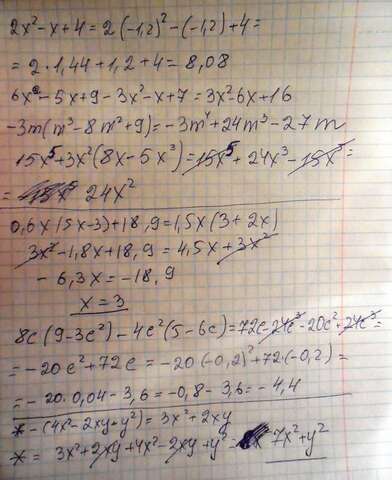 2x²-x+4=2(-1,2)²-(-1,2)+4=
=2·1,44+1,2+4=8,08
6x²-5x+9-3x²-x+7=3x²-6x+16
-3m(m³-8m²+9)=-3m⁴+24m³-27m
15x⁵+3x²(8x-5x³)=15x⁵+24x³-15x⁵=
= 24x²
0,6x(5x-3)+18,9=1,5x(3+2x)
3x²-1,8x+18,9=4,5x+3x²
-6,3x=-18,9
x=3
8c(9-3c²)-4c²(5-6c)=72c-24c³-20c²+24c³=
=-20c²+72c=-20(-0,2)²+72·(-0,2)=
=-20·0,04-3,6=-0,8-3,6=-4,4
*-(4x²-2xy+y²)=3x²+2xy
*= 3x²+2xy+4x²-2xy+y²= 7x²+y²